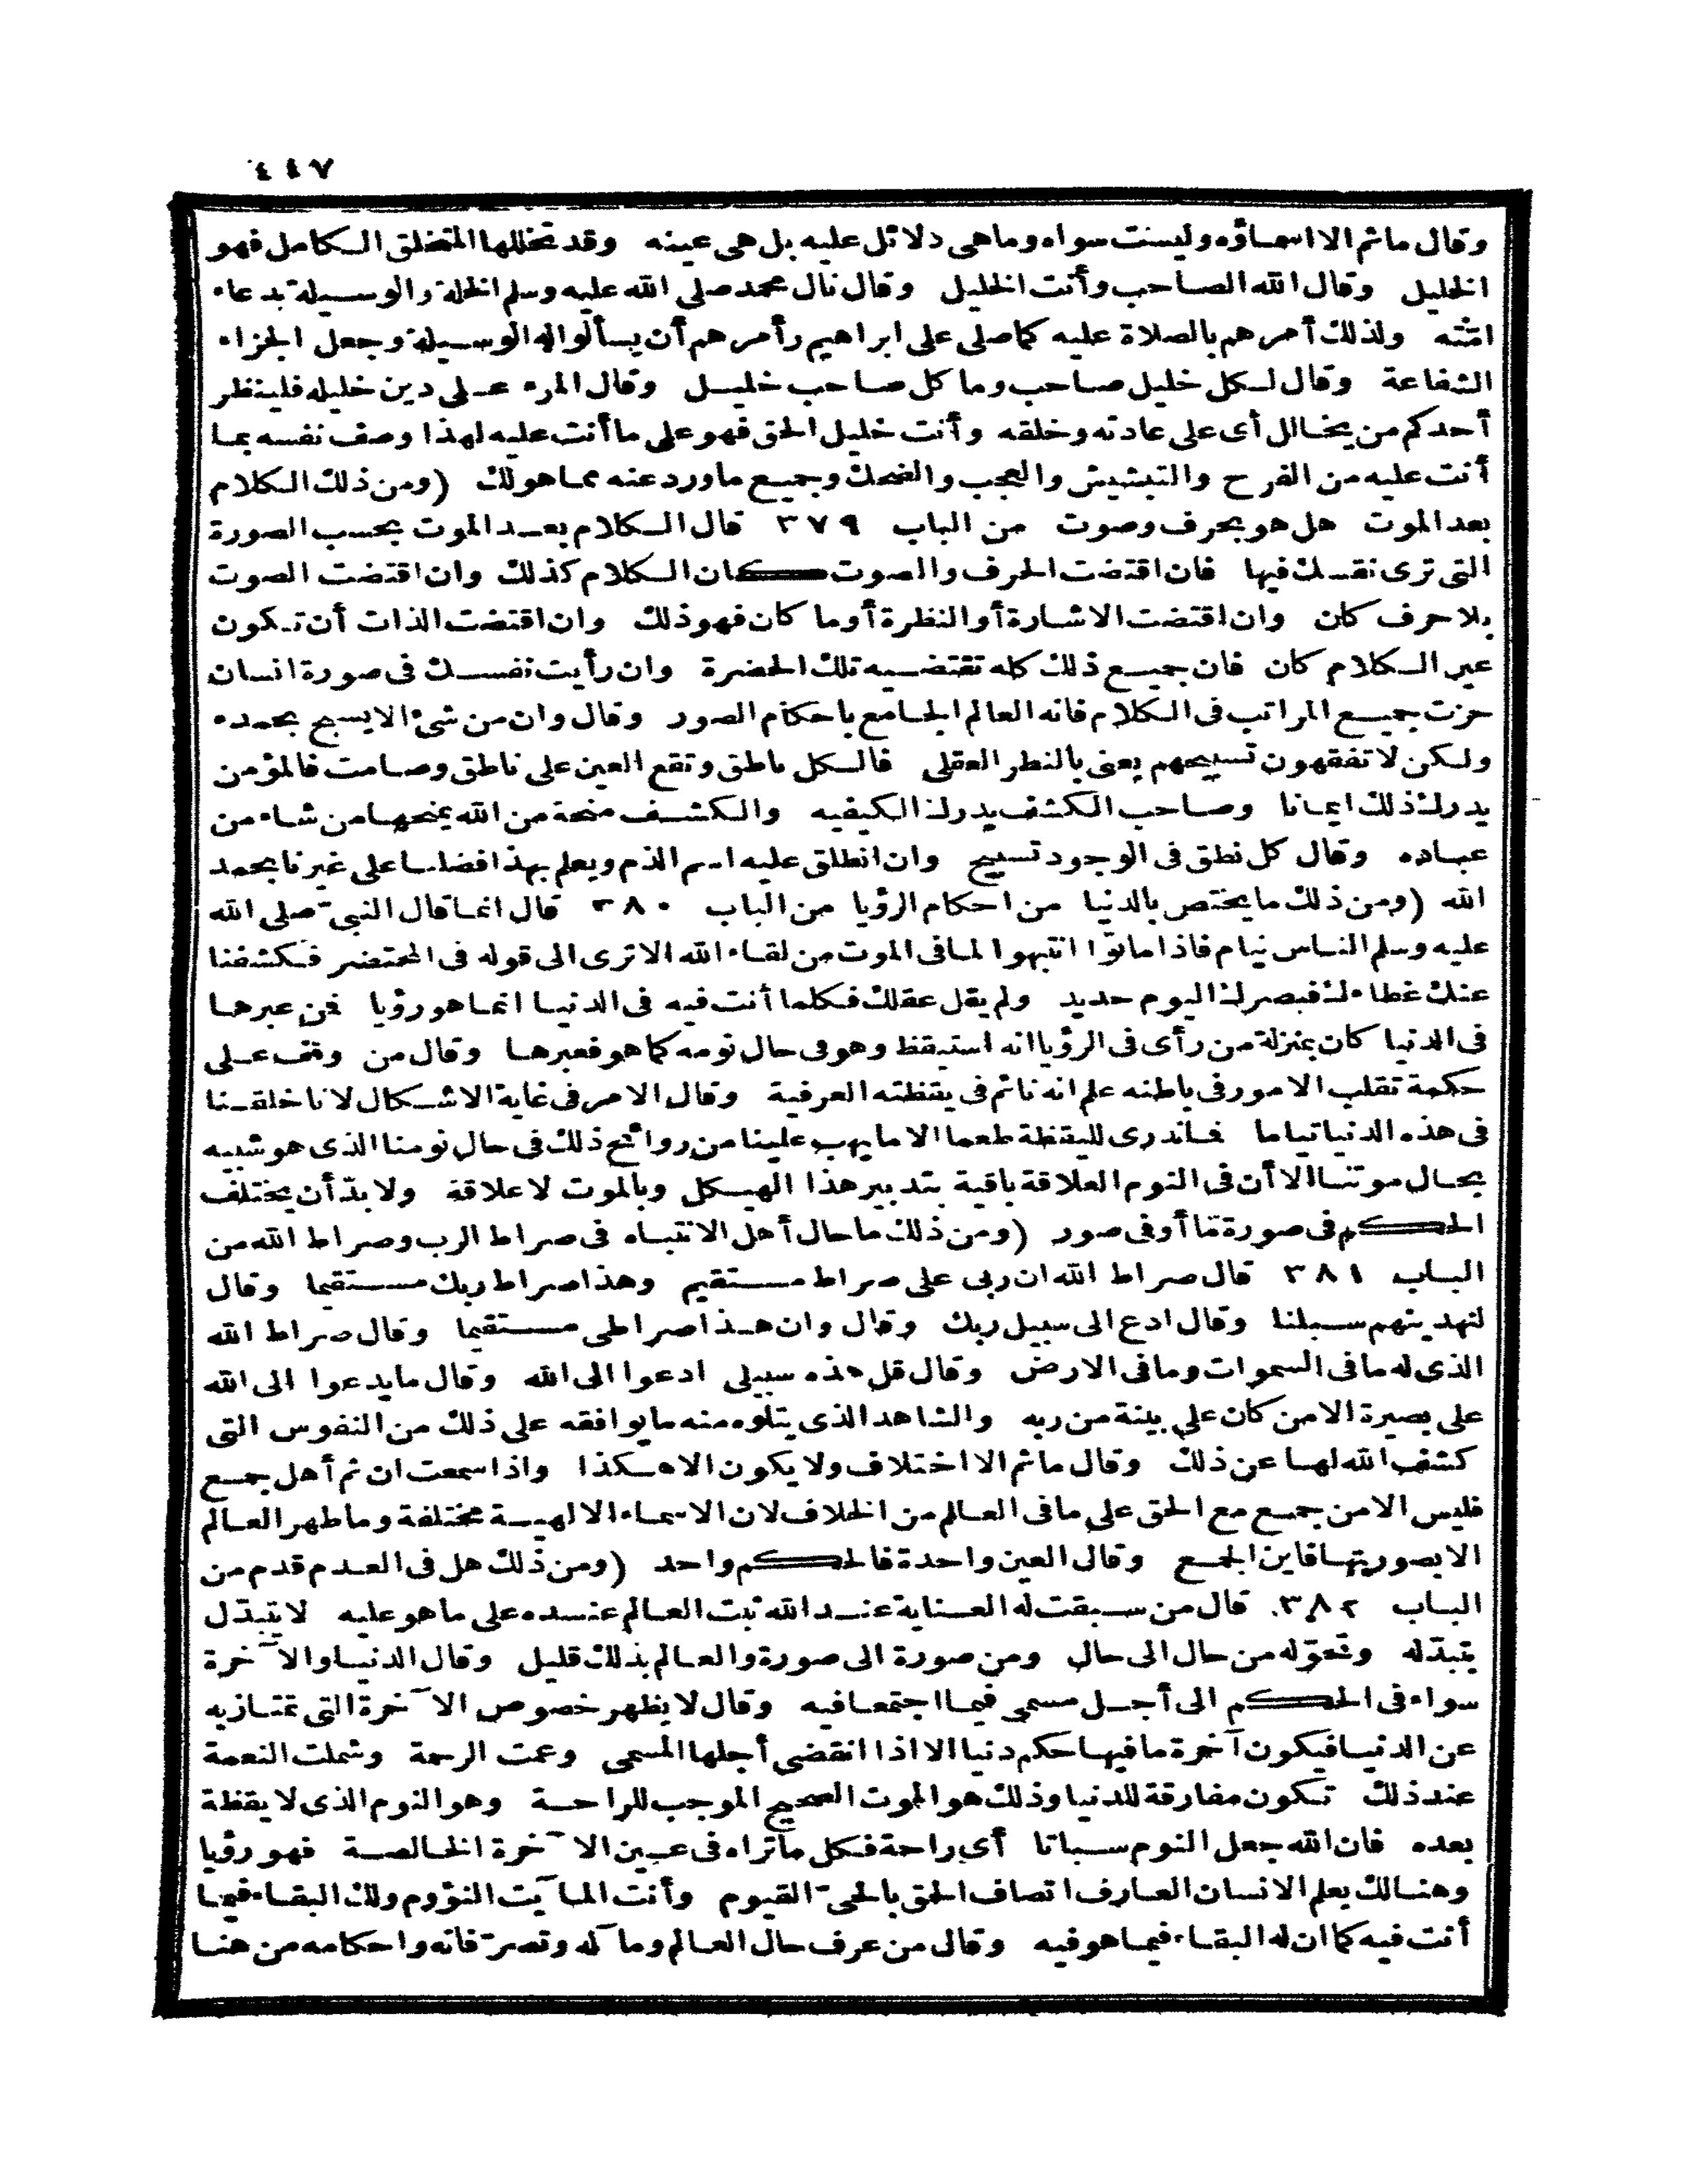 ٤٤٧
وقال ما ثم الا اسماؤه وليست سواه وما هى دلائل عليه بل هى عينه وقد تخللها المتخلق الكامل فهو
الخليل وقال الله الصاحب وأنت الخليل وقال نال محمد صلى الله عليه وسلم الخلة والوسيلة بدعاء
امّته ولذلك أمرهم بالصلاة عليه كما صلى على ابراهيم وأمرهم أن يسألوا له الوسيلة وجعل الجزاء
الشفاعة وقال لكل خليل صاحب وما كل صاحب خليل وقال المرء على دين خليله فلينظر
أحدكم من يخالل أى على عادته وخلقه وأنت خليل الحق فهو على ما أنت عليه لهذا وصف نفسه بما
أنت عليه من الفرح والتبشيش والعجب والضحك وجميع ما ورد عنه مما هو لك (ومن ذلك الكلام
بعد الموت هل هو بحرف وصوت من الباب ٣٧٩ قال الكلام بعد الموت بحسب الصورة
التى ترى نفسك فيها فان اقتضت الحرف والصوت كان الكلام كذلك وان اقتضت الصوت
بلا حرف كان وان اقتضت الاشارة أو النظرة أو ما كان فهو ذلك وان اقتضت الذات أن تكون
عين الكلام كان فان جميع ذلك كله تقتضيه تلك الحضرة وان رأيت نفسك فى صورة انسان
حزت جميع المراتب فى الكلام فانه العالم الجامع باحكام الصور وقال وان من شئ الا يسبح بحمده
ولكن لا تفقهون تسبيحهم يعنى بالنظر العقلى فالكل ناطق وتقع العين على ناطق وصامت فالمؤمن
يدرك ذلك ايمانا وصاحب الكشف يدرك الكيفيه والكشف منحة من الله يمنحها من شاء من
عباده وقال كل نطق فى الوجود تسبيح وان انطلق عليه اسم الذم وبعلم بهذا فضلنا على غيرنا بحمد
الله (ومن ذلك ما يختص بالدنيا من احكام الرؤيا من الباب ٣٨٠ قال انما قال النبىّ صلى الله
عليه وسلم الناس نيام فاذا ماتوا انتبهوا لما فى الموت من لقاء الله الا ترى الى قوله فى المحتضر فكشفنا
عنك غطاءك فبصرك اليوم حديد ولم يقل عقلك فكلما أنت فيه فى الدنيا انما هو رؤيا فمن عبرها
فى الدنيا كان بمنزلة من رأى فى الرؤيا انه استيقظ وهو فى حال نومه كما هو فعبرها وقال من وقف على
حكمة تقلب الامور فى باطنه علم انه نائم فى يقظته العرفية وقال الامر فى غاية الاشكال لانا خلقنا
فى هذه الدنيا نياما فما ندرى لليقظة طعما الا ما يهب علينا من روائح ذلك فى حال نومنا الذى هو شبيه
بحال موتنا الا أن فى النوم العلاقة باقية بتدبير هذا الهيكل وبالموت لا علاقة ولا بدّ أن يختلف
الحكم فى صورة تما أو فى صور (ومن ذلك ما حال أهل الانتباه فى صراط الرب وصراط الله من
الباب ٣٨١ قال صراط الله ان ربى على صراط مستقيم وهذا صراط ربك مستقيما وقال
لنهدينهم سبلنا وقال ادع الى سبيل ربك وقال وان هذا صراطى مستقيما وقال صراط الله
الذى له ما فى السموات وما فى الارض وقال قل هذه سبيلى ادعوا الى الله وقال ما يدعوا الى الله
على بصيرة الا من كان على بينة من ربه والشاهد الذى يتلوه منه ما يوافقه على ذلك من النفوس التى
كشف الله لها عن ذلك وقال ما ثم الا اختلاف ولا يكون الا هكذا واذا سمعت ان ثم أهل جمع
فليس الا من جمع مع الحق على ما فى العالم من الخلاف لان الاسماء الالهية مختلفة وما ظهر العالم
الا بصورتها فاين الجمع وقال العين واحدة فالحكم واحد (ومن ذلك هل فى العدم قدم من
الباب ٣٨٢ قال من سبقت له العناية عند الله ثبت العالم عنده على ما هو عليه لا يتبدّل
بتبدّله وتحوّله من حال الى حال ومن صورة الى صورة والعالم بذلك قليل وقال الدنيا والآخرة
سواء فى الحكم الى أجل مسمى فيما اجتمعا فيه وقال لا يظهر خصوص الآخرة التى تمتاز به
عن الدنيا فيكون آخرة ما فيها حكم دنيا الا اذا انقضى أجلها المسمى وعمت الرحمة وشملت النعمة
عند ذلك تكون مفارقة للدنيا وذلك هو الموت الصحيح الموجب للراحة وهو النوم الذى لا يقظة
بعده فان الله جعل النوم سباتا أى راحة فكل ما تراه فى عين الآخرة الخالصة فهو رؤيا
وهنالك يعلم الانسان العارف اتصاف الحق بالحىّ القيوم وأنت المائت النؤوم ولك البقاء فيما
أنت فيه كما ان له البقاء فيما هو فيه وقال من عرف حال العالم ومآله وتصرّفاته واحكامه من هنا